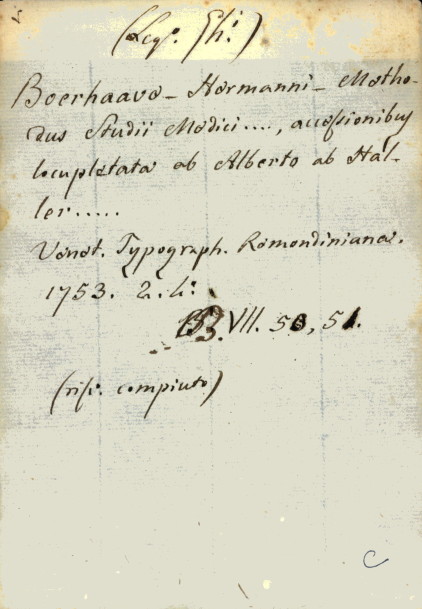 (Leg. Gh:)
Boerhaave_ Hermanni_ Metho-
dus Studii Medici...., accessionibus
locupletata ab Alberto ab Hal-
ler.....
Venet. Typograph. Remondiniana.
1753. 2. t:
B3. VII. 50, 51.
(rif. compiuto)
C